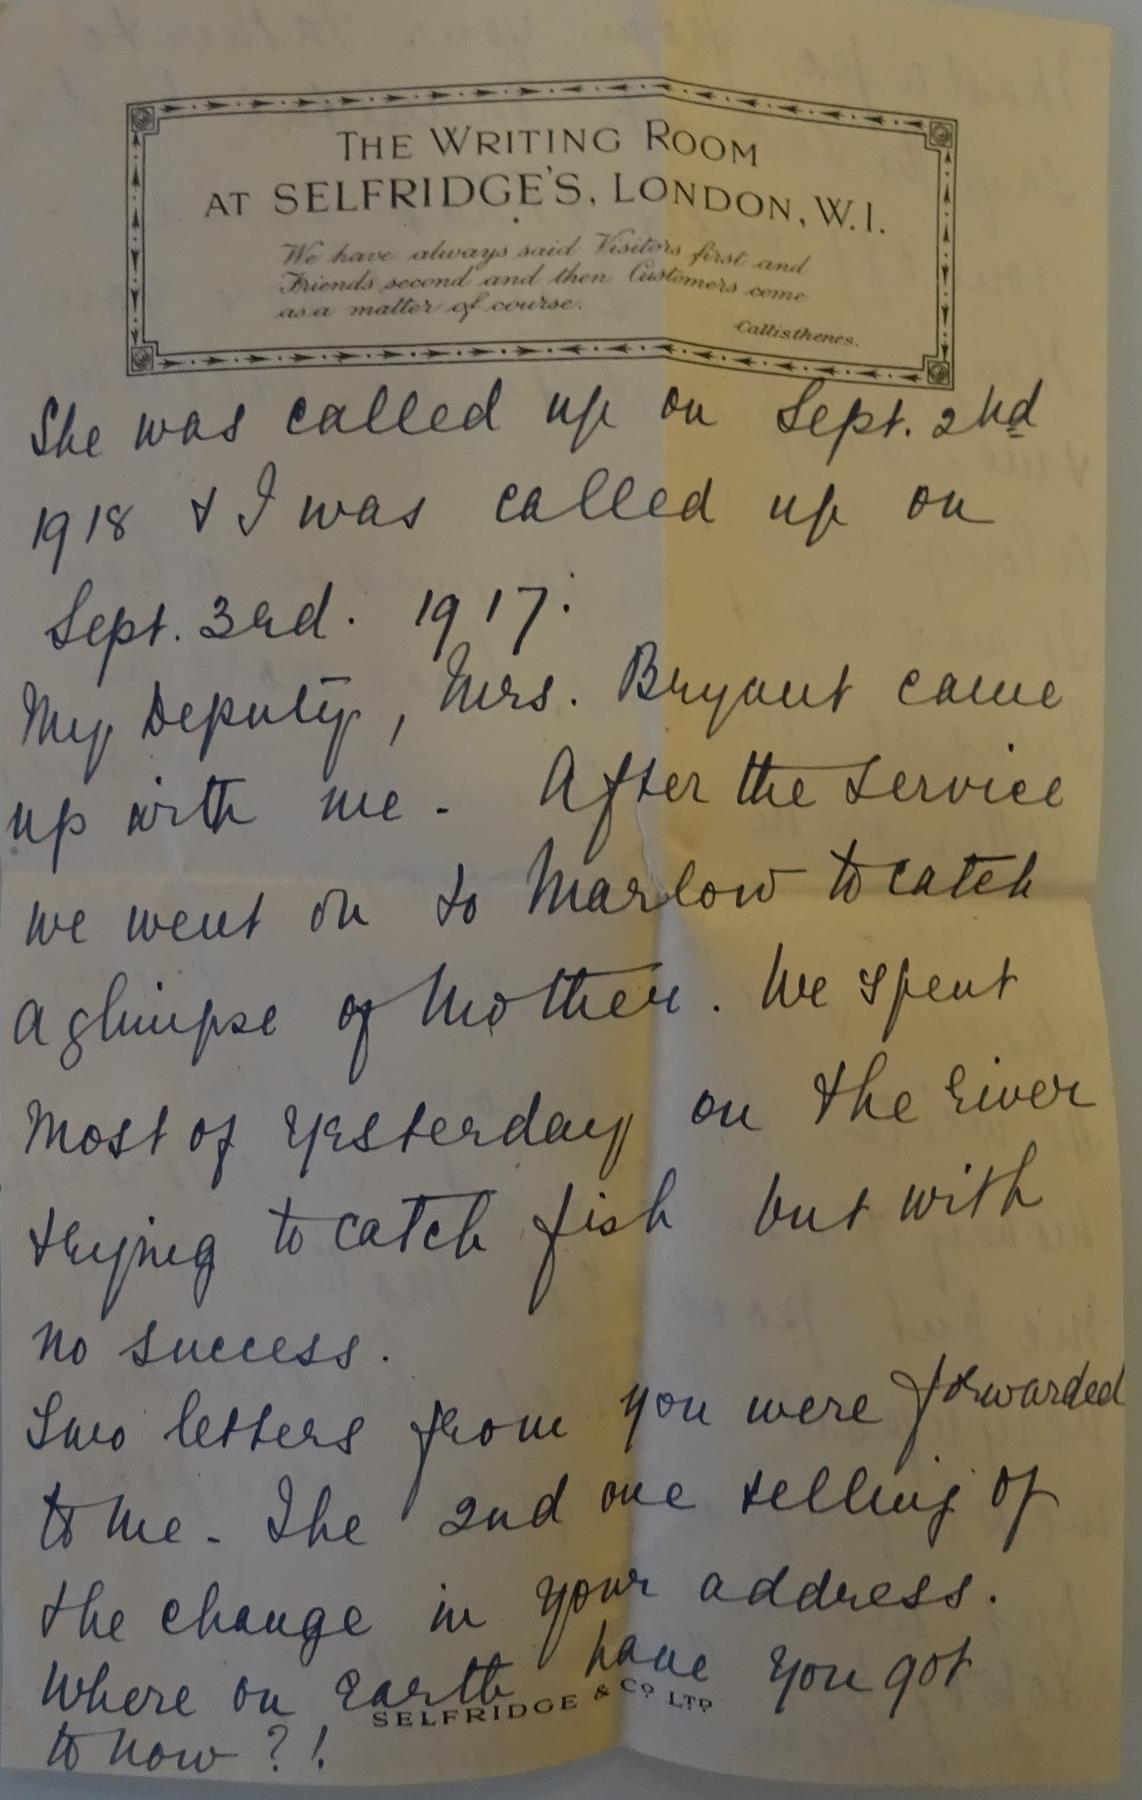 THE WRITING ROOM
AT SELFRIDGE'S, LONDON, W.1.
We have always said Visitors first and
Friends second and then Customers come
as a matter of course.
Callisthenes.
She was called up on Sept. 2nd
1918 & I was called up on
Sept. 3rd. 1917.
My Deputy, Mrs. Bryant came
up with me - After the service
we went on to Marlow to catch
a glimpse of Mother. We spent
most of yesterday on the river
trying to catch fish but with
no success.
Two letters from you were forwarded
to me - The 2nd one telling of
the change in your address.
Where on earth have you got
SELFRIDGE & CO LTD
to now?!